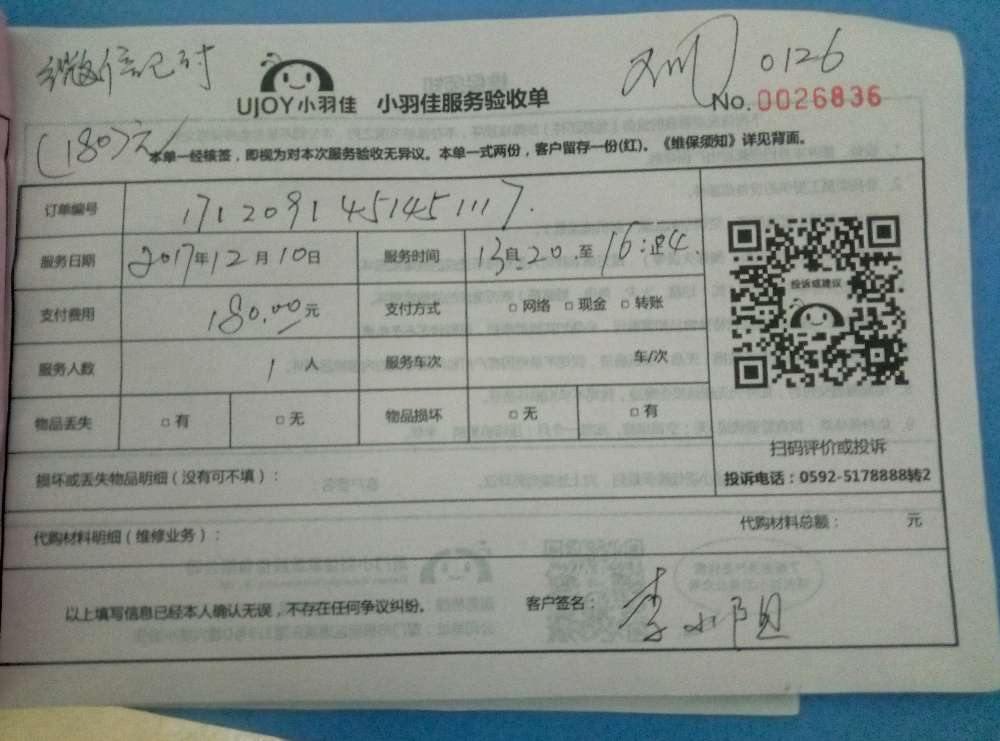 微信已付 0126
UJOY小羽佳 小羽佳服务验收单 No.0026836
(180)元
本单一经核签，即视为对本次服务验收无异议。本单一式两份，客户留存一份(红)。《维保须知》详见背面。
订单编号 171209145145117.
服务日期 2017年12月10日 服务时间 13自:20 至 16:
支付费用 180.00元 支付方式 □网络 □现金 □转账
投诉或建议
服务人数 1人 服务车次 车/次
物品丢失 □有 □无 物品损坏 □无 □有
扫码评价或投诉
损坏或丢失物品明细（没有可不填）： 投诉电话：0592-5178888转2
代购材料明细（维修业务）： 代购材料总额： 元
以上填写信息已经本人确认无误，不存在任何争议纠纷。 客户签名： 李小阳